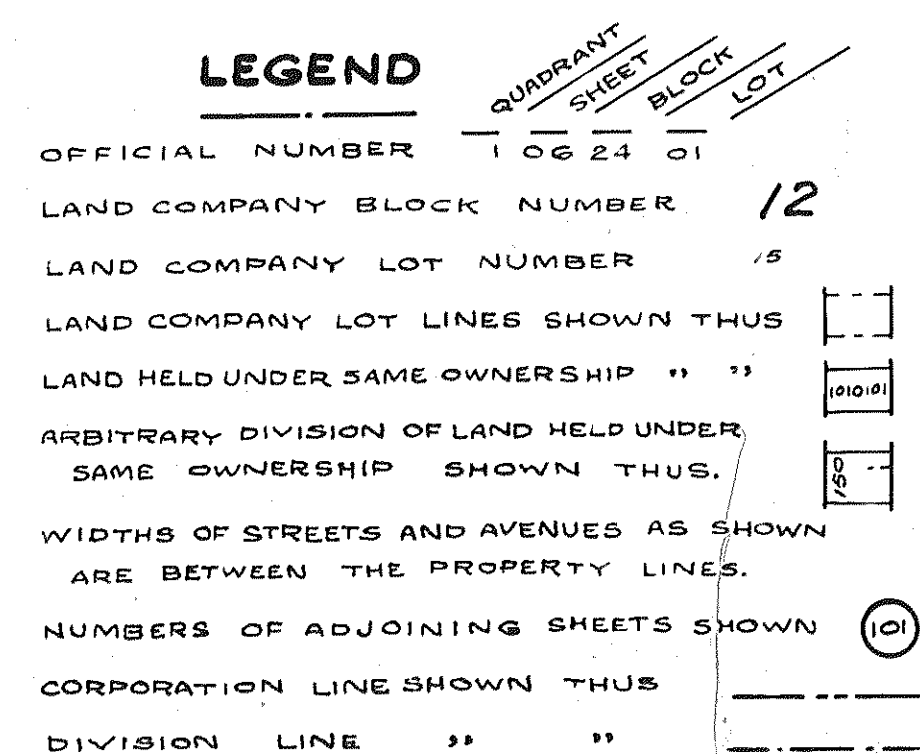 LEGEND
QUADRANT SHEET BLOCK LOT
OFFICIAL NUMBER 1 06 24 01
LAND COMPANY BLOCK NUMBER 12
LAND COMPANY LOT NUMBER 15
LAND COMPANY LOT LINES SHOWN THUS
LAND HELD UNDER SAME OWNERSHIP " " 1010101
ARBITRARY DIVISION OF LAND HELD UNDER
SAME OWNERSHIP SHOWN THUS. 150
WIDTHS OF STREETS AND AVENUES AS SHOWN
ARE BETWEEN THE PROPERTY LINES.
NUMBERS OF ADJOINING SHEETS SHOWN 101
CORPORATION LINE SHOWN THUS
DIVISION LINE " "